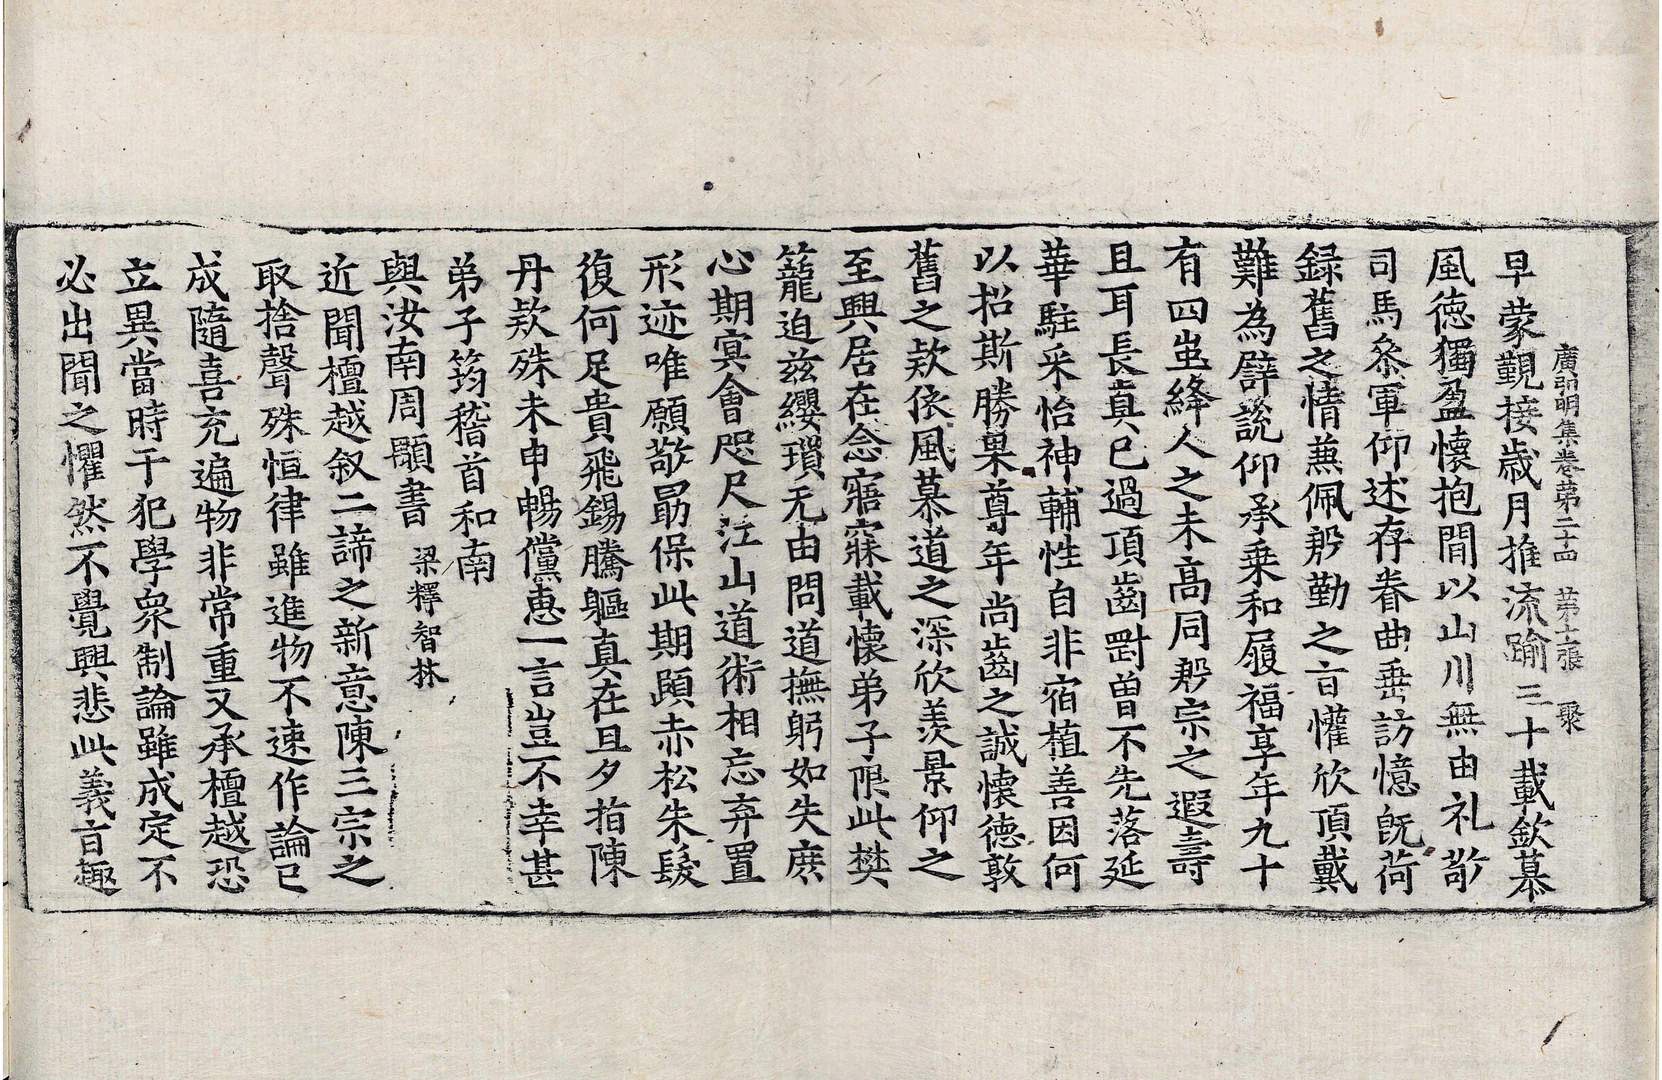 廣弘明集卷第二十四 第十張 聚
早蒙覲接歲月推流踰三十載欽慕
風德獨盈懷抱間以山川無由礼敬
司馬叅軍仰述存眷曲垂訪憶旣荷
録舊之情兼佩㔟勤之旨懽欣頂戴
難為譬說仰承乗和履福享年九十
有四蚩絳人之未髙同㔟宗之遐壽
且耳長真已過頂齒㔁曽不先落延
華駐采怡神輔性自非宿植善因何
以招斯勝果尊年尚齒之誠懷德敦
舊之欵依風慕道之深欣羡景仰之
至興居在念寤寐載懷弟子限此樊
籠迫兹纓瑣无由問道撫躬如失庶
心期冥會咫尺江山道術相忘弃置
形迹唯願敬勗保此期頤赤松朱髮
復何足貴飛錫騰軀真在旦夕指陳
丹欵殊未申暢儻惠一言豈不幸甚
弟子筠稽首和南
與汝南周顒書 梁釋智林
近聞檀越叙二諦之新意陳三宗之
取捨聲殊恒律雖進物不速作論已
成隨喜充遍物非常重又承檀越恐
立異當時干犯學衆制論雖成定不
必出聞之懼然不覺興悲此義旨趣